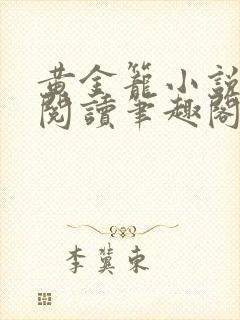 黄金籠小説
閱讀筆趣閣
李冀東